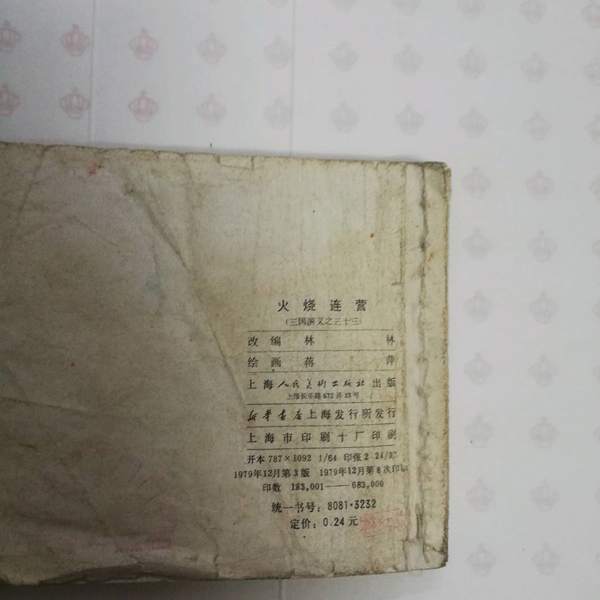 火烧连营
(三国演义之三十三)
改编 林 林
绘画 蒋 萍
上海人民美术出版社出版
上海长乐路672弄33号
新华书店上海发行所发行
上海市印刷十厂印刷
开本 787×1092 1/64 印张 2 24/32
1979年12月第3版 1979年12月第6次印
印数 183,001——683,000
统一书号：8081·3232
定价：0.24元